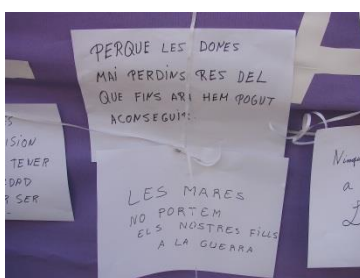 PERQUE LES DONES
MAI PERDINS RES DEL
QUE FINS ARA HEM POGUT
ACONSEGUIR
LES MARES
NO PORTEM
ELS NOSTRES FILLS
A LA GUERRA
ISION
TENER
DAD
SER
a